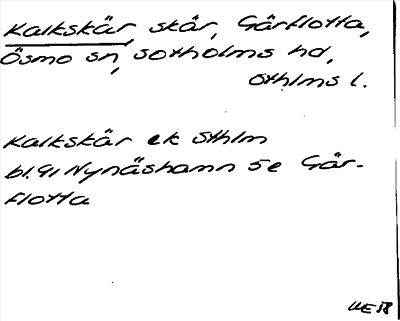 Kalkskär, skär, Gårflotta,
Ösmo sn, Sotholms hd,
Sthlms l.
Kalkskär ek Sthlm
bl. 91 Nynäshamn SE Går-
flotta